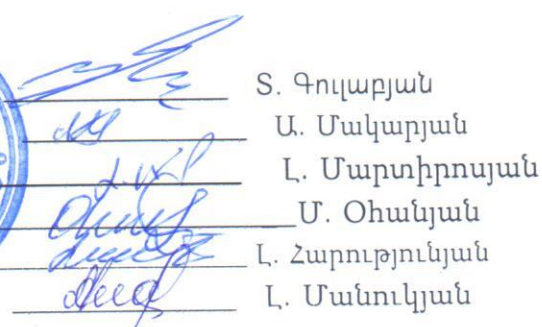 Տ. Գուլաբյան
Ա. Մակարյան
Լ. Մարտիրոսյան
Մ. Օհանյան
Լ. Հարությունյան
Լ. Մանուկյան